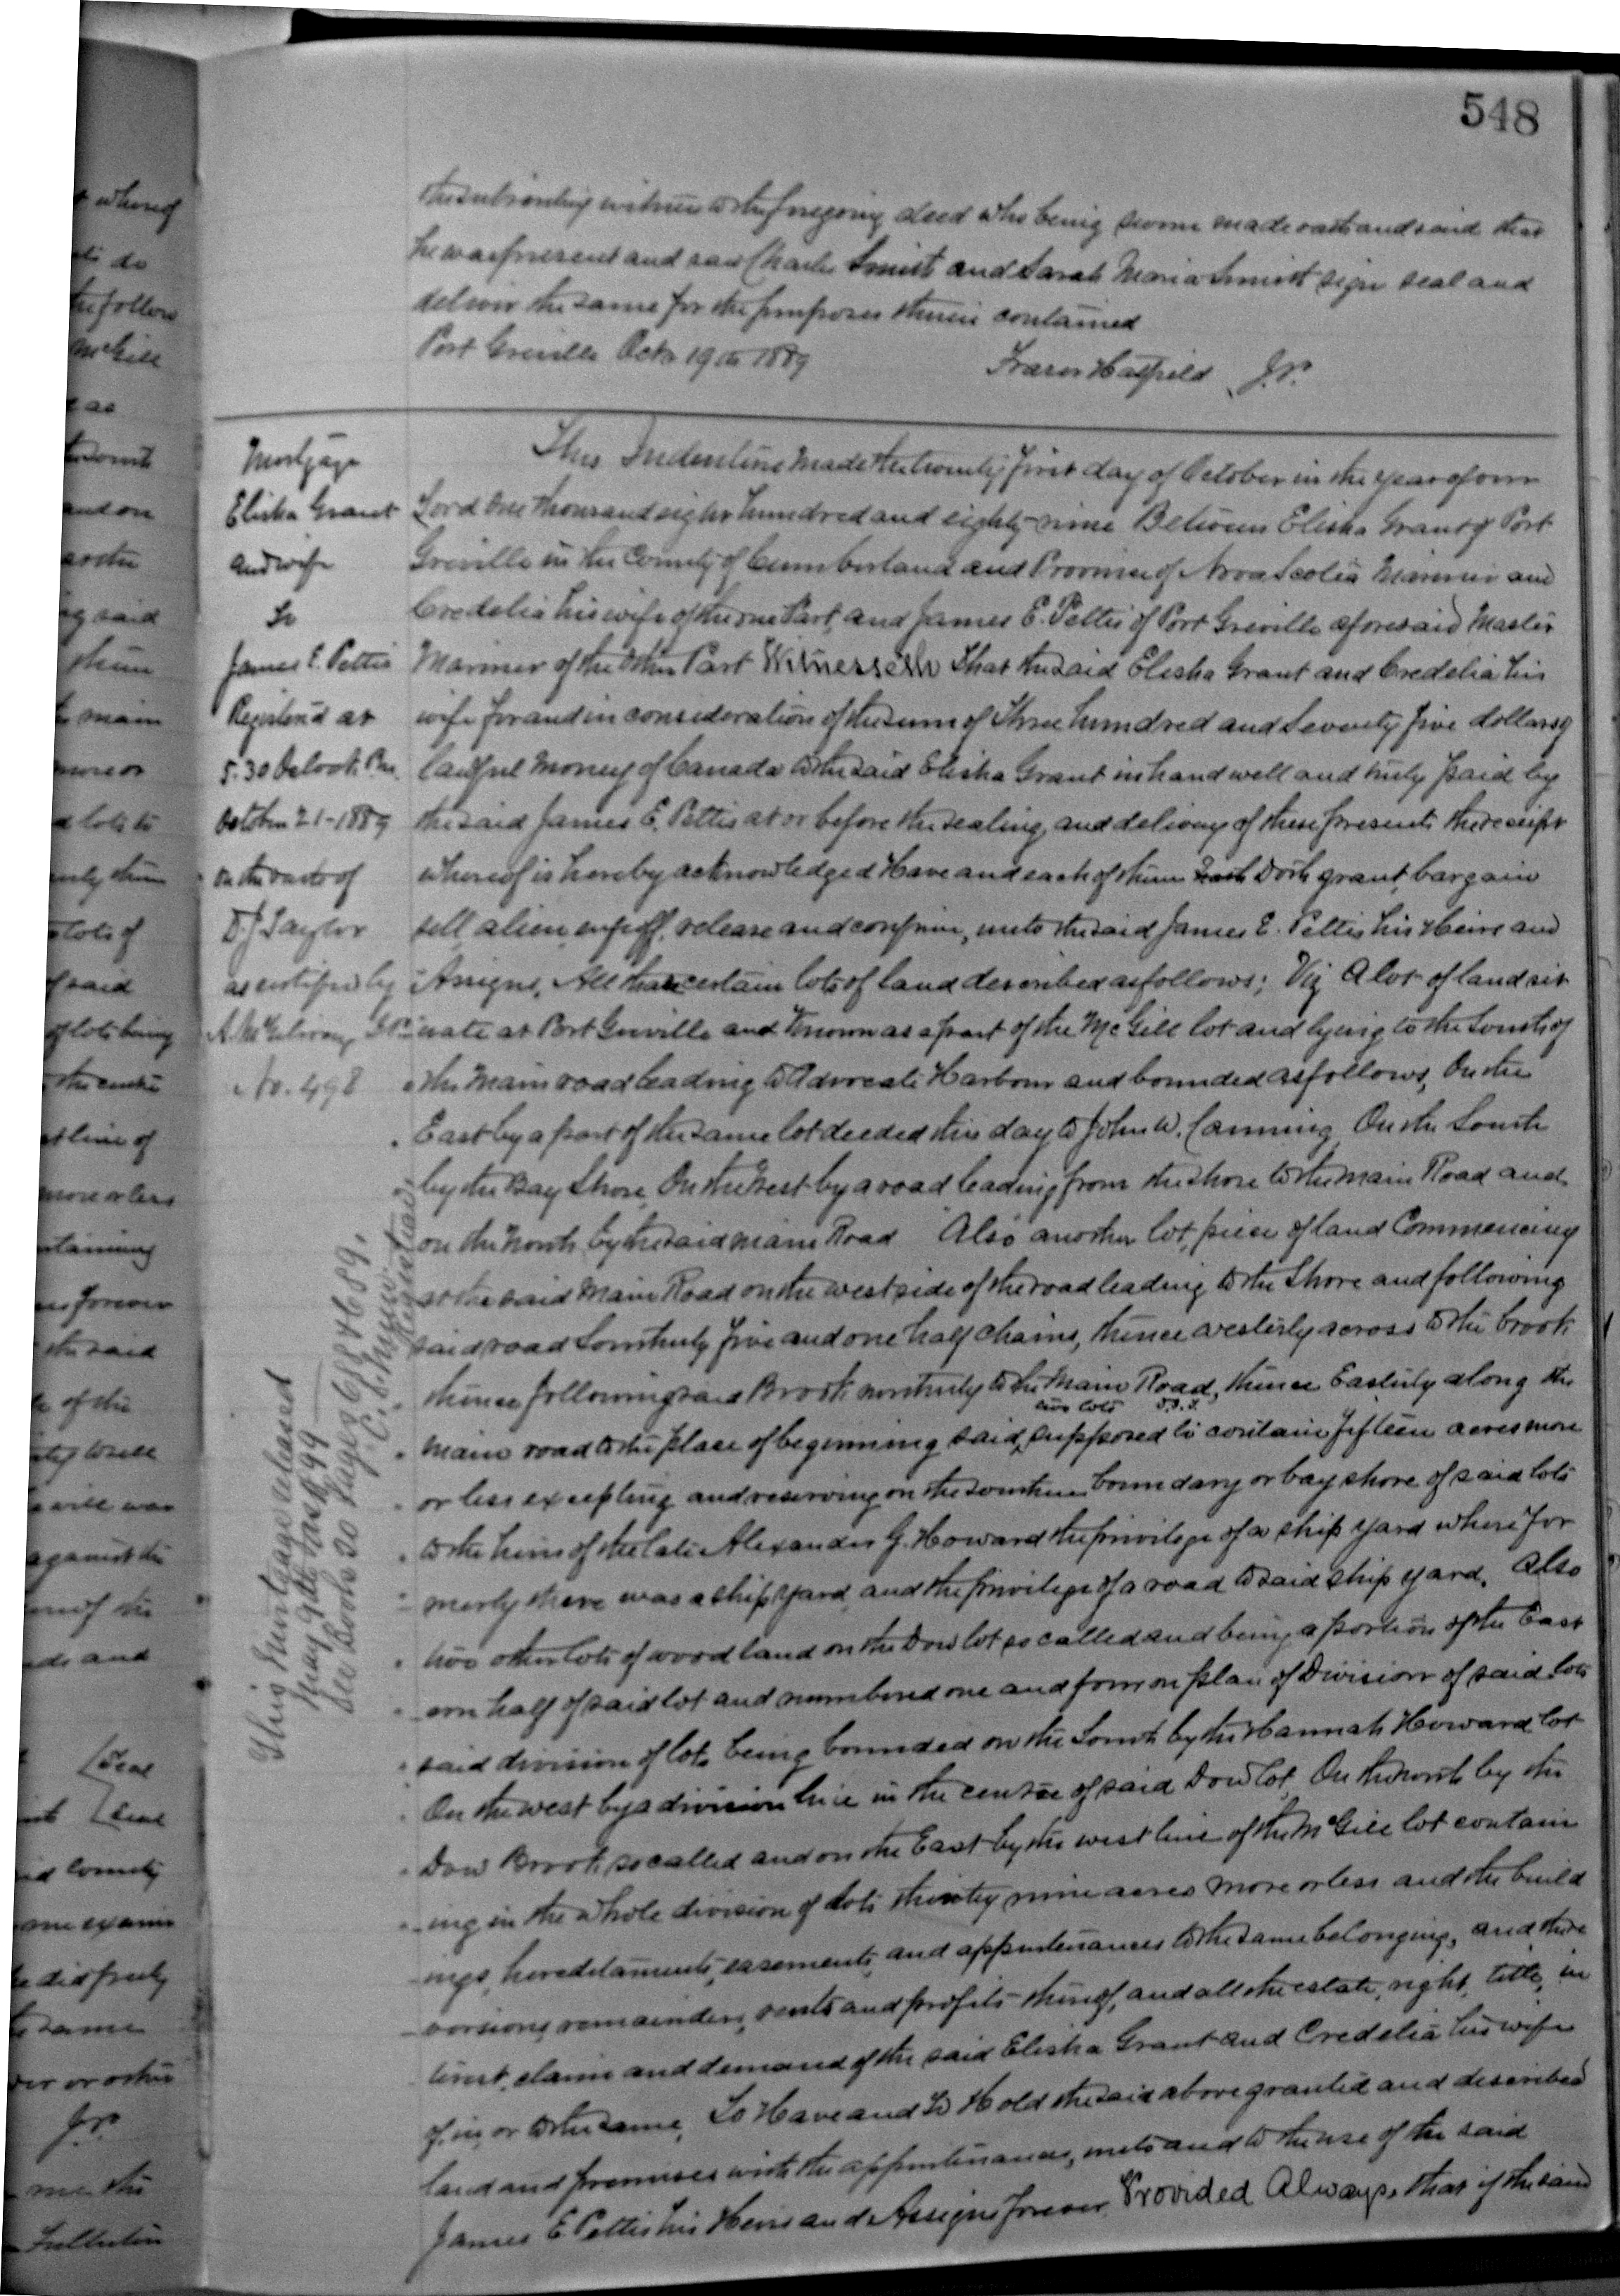 548
the subscribing witness to the foregoing deed who being sworn made oath and said that
he was present and saw Charles Smith and Sarah Maria Smith sign seal and
deliver the same for the purposes therein contained
Port Greville Octr 19th 1889 Frazer Hatfield J.P.
Mortgage
Elisha Grant
and wife
To
James E. Pettis
Registered at
5.30 Oclock P.m.
October 21-1889
on the oath of
D.J Taylor
as certified by
A. McGilvray J.P.
No. 498
This Indenture made the twenty first day of October in the year of our
Lord one thousand eight hundred and eighty-nine Between Elisha Grant of Port
Greville in the County of Cumberland and Province of Nova Scotia Mariner and
Credelia his wife of the one Part, and James E. Pettis of Port Greville aforesaid Master
Mariner of the other Part Witnesseth That the said Elisha Grant and Credelia his
wife for and in consideration of the sum of Three hundred and Seventy five dollars of
lawful money of Canada to the said Elisha Grant in hand well and truly paid by
the said James E. Pettis at or before the sealing, and delivery of these presents the receipt
whereof is hereby acknowledged Have and each of them Doth grant, bargain
sell, alien, enfeoff, release and confirm, unto the said James E. Pettis his Heirs and
Assigns, All that certain lots of land described as follows; Viz A lot of land sit
uate at Port Greville and Known as a part of the McGill lot and lying to the South of
the Main road leading to Advocate Harbour and bounded as follows, On the
East by a part of the same lot deeded this day to John W. Canning On the South
by the Bay Shore, On the West by a road leading from the shore to the main Road and
on the North by the said main Road Also another lot, piece of land Commencing
at the said Main Road on the west side of the road leading to the Shore and following
said road Southerly five and one half chains, thence westerly across to the brook
thence following said Brook northerly to the Main Road, thence Easterly along the
main road to the place of beginning said two lots D.J.T. supposed to contain fifteen acres more
or less excepting and reserving on the southern boundary or bay shore of said lots
to the heirs of the late Alexander G. Howard the privilege of a ship yard where for
merly there was a ship yard, and the privilege of a road to said ship yard. Also
two other lots of wood land on the Dow lot so called and being a portion of the East
ern half of said lot and numbered one and four on plan of Division of said lots
said division of lots being bounded on the South by the Hannah Howard lot
On the west by a division line in the centre of said Dow lot, On the North by the
Dow Brook so called and on the East by the west line of the McGill lot contain
ing in the whole division of lots thirty nine acres more or less and the build
ings, hereditaments, easements, and appurtenances to the same belonging, and the re
versions, remainders, rents and profits thereof, and all the estate, right, title, in
terest, claim and demand of the said Elisha Grant and Credelia his wife
of, in, or to the same, To Have and To Hold the said above granted and described
land and premises with the appurtenances, unto and to the use of the said
James E Pettis his Heirs and Assigns forever, Provided Always, that if the said
This Mortgage released
May 9th 1899
See Book 30 Pages 688 & 689.
Registrar
whereof
do
the follow
McGill
as
and on
said
them
main
more or
lots to
lots of
said
of lots being
the centre
line of
more or less
forever
the said
of the
will
against the
and
Seal
Seal
County
did freely
same
or other
J.P.